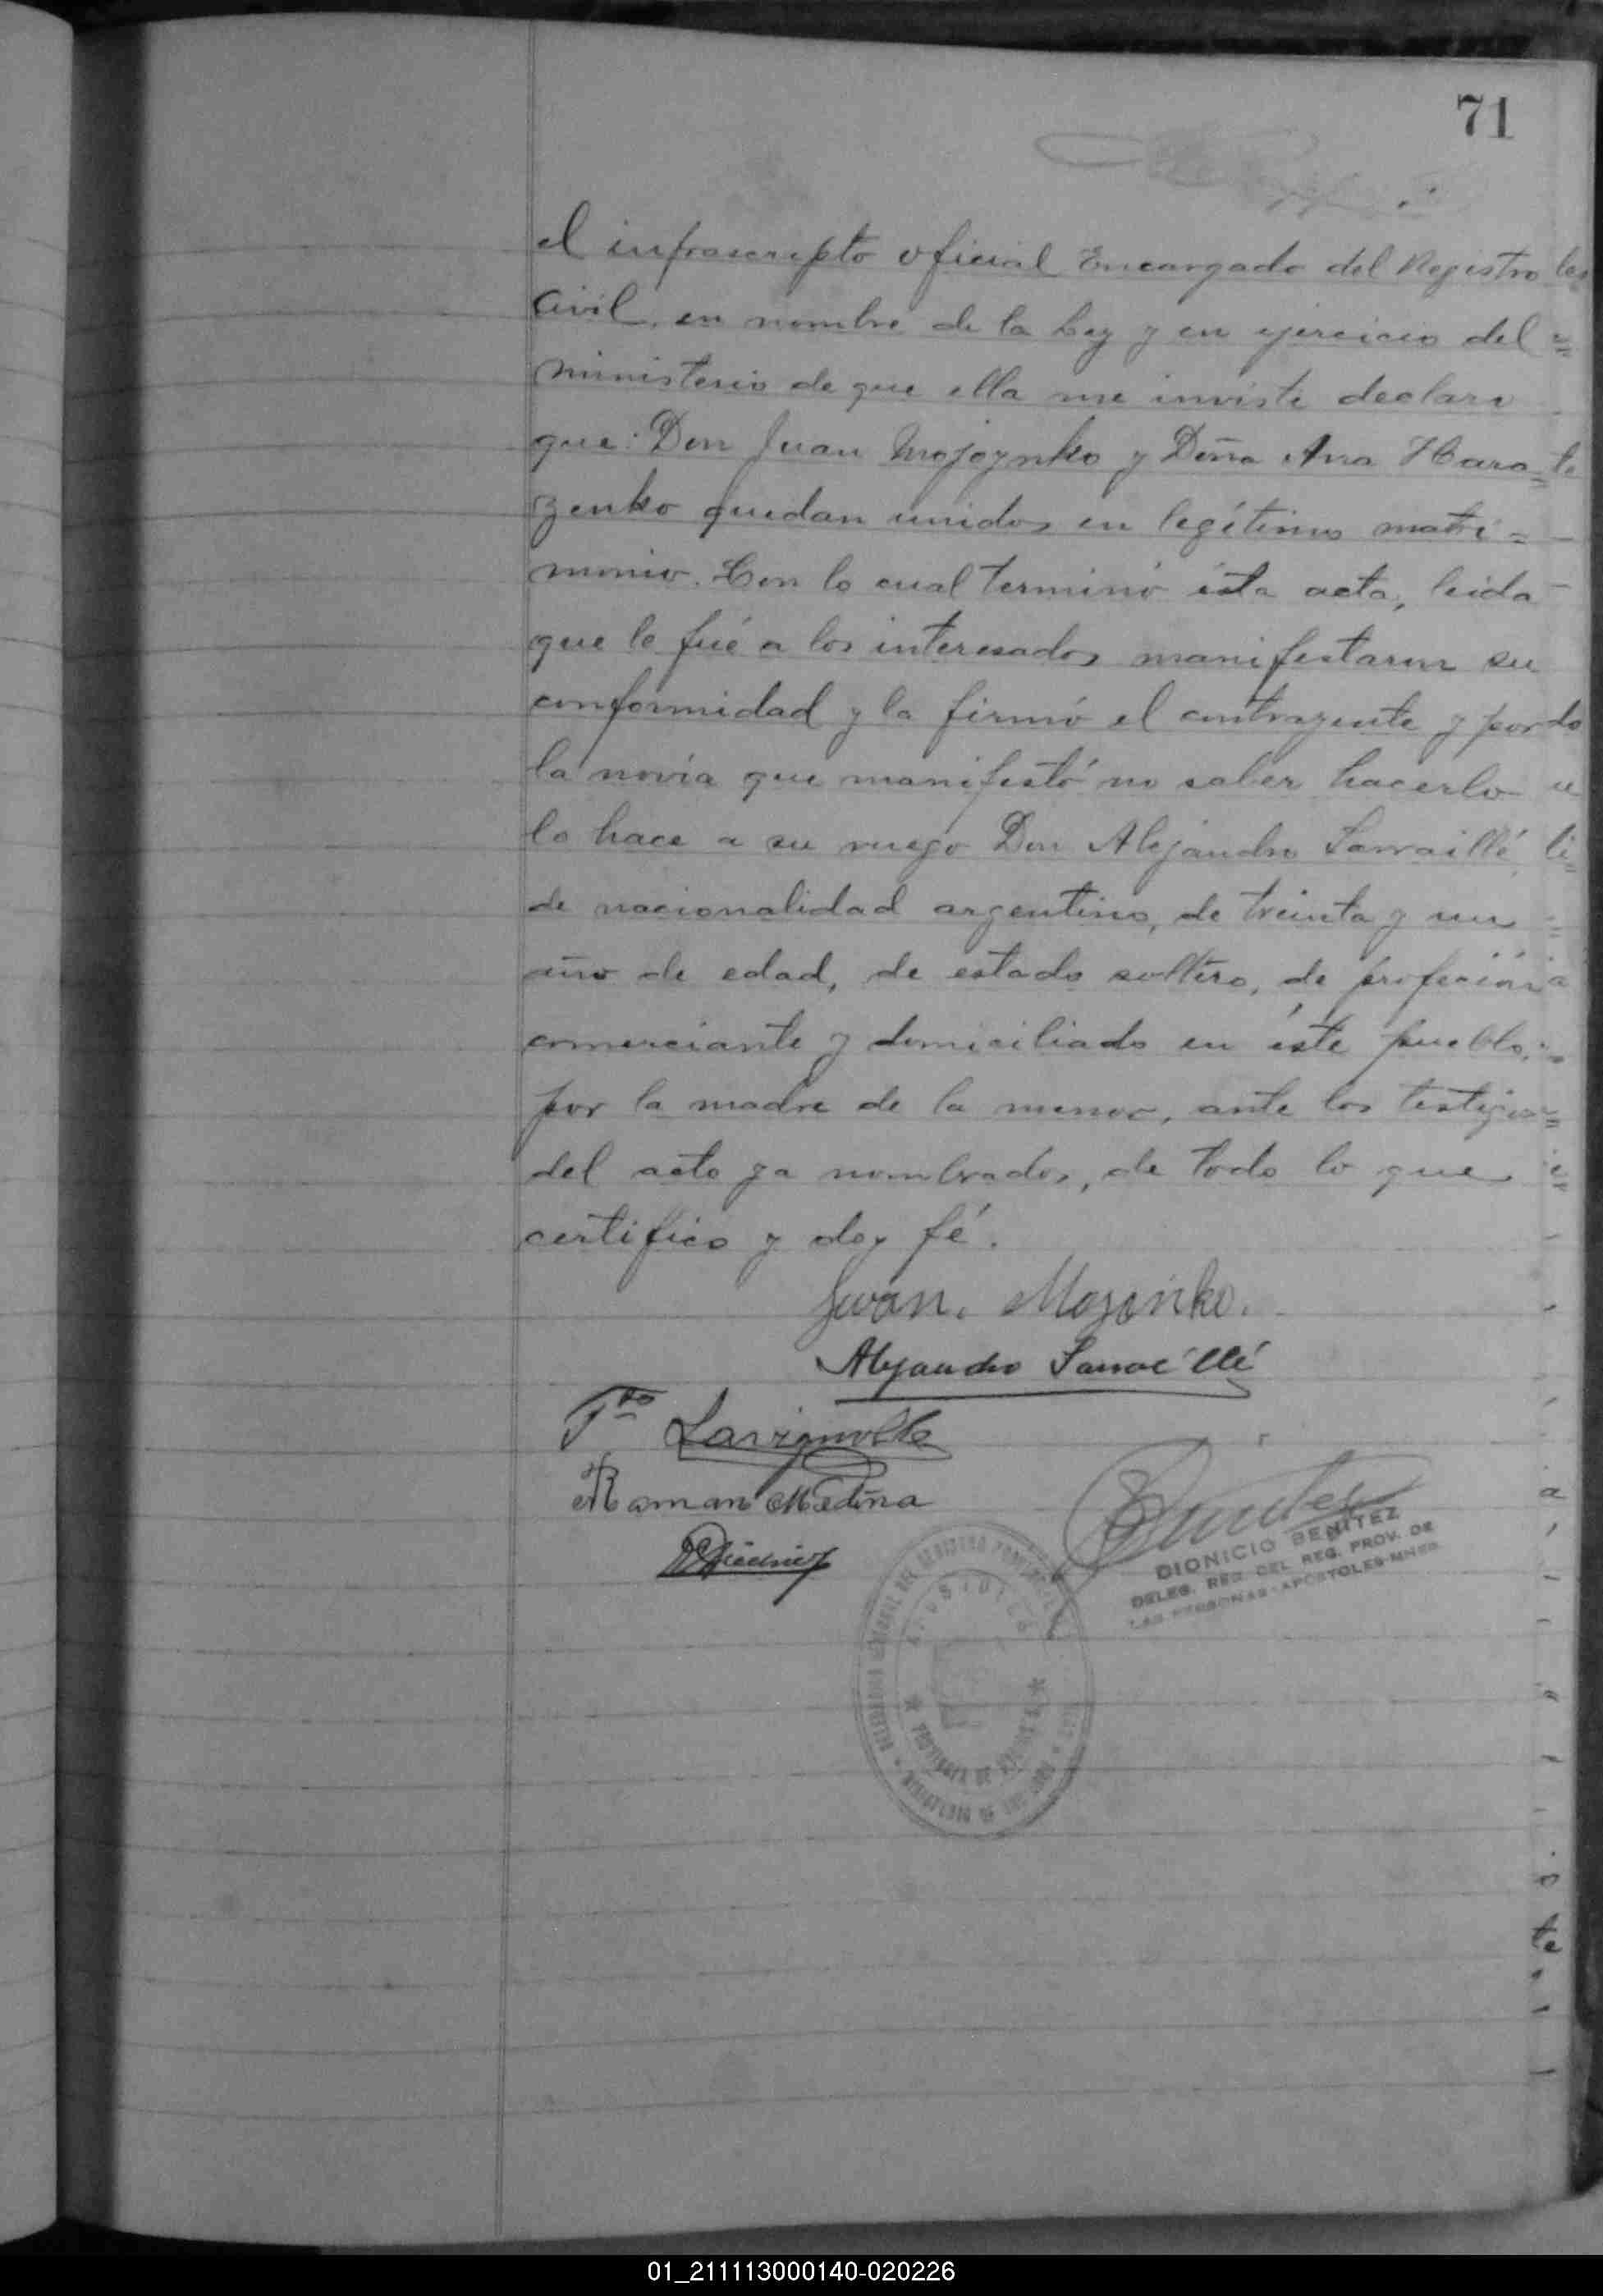 71
el infrascripto oficial Encargado del Registro
Civil, en nombre de la Ley y en ejercicio del
ministerio de que ella me inviste declaro
que: Don Juan Mojoynko y Doña Ana Hara=
zenko quedan unidos en legítimo matri=
monio. Con lo cual terminó ésta acta, leida
que le fué a los interesados manifestaron su
conformidad y la firmó el contrayente y por
la novia que manifestó no saber hacerlo
lo hace a su ruego Don Alejandro Larraillé,
de nacionalidad argentino, de treinta y un
año de edad, de estado soltero, de profeción
comerciante y domiciliado en éste pueblo,
por la madre de la menor, ante los testigos
del acto ya nombrados, de todo lo que
certifico y doy fé.
Juan. Mozinko.
Alejandro Larraillé
Lavignolle
Roman Medina
DIONICIO BENITEZ
DELEG. REG. DEL REG. PROV. DE
LAS PERSONAS-APOSTOLES-MNES.
PROVINCIA DE MISIONES
01_211113000140-020226